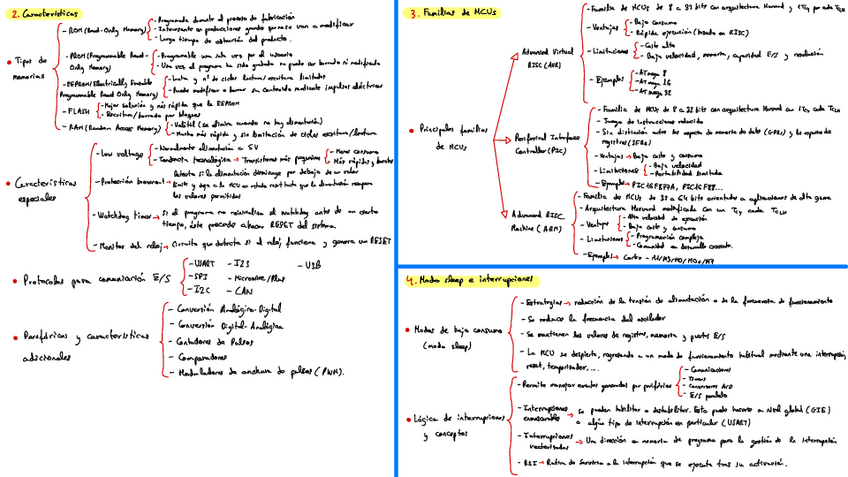 2. Características
• Tipos de memorias
- ROM (Read-Only Memory)
- Programada durante el proceso de fabricación
- Interesante en producciones grandes que no se van a modificar
- Largo tiempo de obtención del producto.
- PROM (Programmable Read-Only Memory)
- Programable una sola vez por el usuario
- Una vez el programa ha sido grabado no puede ser borrado ni modificado
- EEPROM (Electrically Erasable Programmable Read Only Memory)
- Lenta y nº de ciclos lectura/escritura limitados
- Puede modificar o borrar su contenido mediante impulsos eléctricos
- FLASH
- Mejor solución y más rápida que la EEPROM
- Reescritura/borrado por bloques
- RAM (Random Access Memory)
- Volátil (se elimina cuando no hay alimentación)
- Mucho más rápida y sin limitación de ciclos escritura/lectura
• Características especiales
- Low voltage
- Normalmente alimentación a 5V
- Tendencia tecnológica → Transistores más pequeños
- Menor consumo
- Más rápidos y baratos
- Protección brownout
Detecta si la alimentación disminuye por debajo de un valor
límite y deja a la MCU en estado reset hasta que la alimentación recupere
los valores permitidos
- Watchdog timer → Si el programa no reinicializa el watchdog antes de un cierto
tiempo, éste provocará un RESET del sistema.
- Monitor del reloj → Circuito que detecta si el reloj funciona y genera un RESET
• Protocolos para comunicación E/S
- UART - I2S - USB
- SPI - Microwire/Plus
- I2C - CAN
• Periféricos y características adicionales
- Conversión Analógica-Digital
- Conversión Digital-Analógica
- Contadores de Pulsos
- Comparadores
- Moduladores de anchura de pulsos (PWM).
3. Familias de MCUs
• Principales familias de MCUs
Advanced Virtual RISC (AVR)
- Familia de MCUs de 8 a 32 bits con arquitectura Harvard y 1 TCY por cada TCLK
- Ventajas
- Bajo consumo
- Rápida ejecución (basada en RISC)
- Limitaciones
- Coste alto
- Baja velocidad, memoria, capacidad E/S y resolución
- Ejemplos
- ATmega 8
- ATmega 16
- ATmega 32
Peripheral Interface Controller (PIC)
- Familia de MCUs de 8 a 32 bits con arquitectura Harvard con 1 TCY cada TCLK
- Juego de instrucciones reducido
- Sin distinción entre los espacios de memoria de datos (GPRs) y los espacios de
registros (SFRs)
- Ventajas → Bajo coste y consumo
- Limitaciones
- Baja velocidad
- Portabilidad limitada
- Ejemplos → PIC16F877A, PIC16F88...
Advanced RISC Machine (ARM)
- Familia de MCUs de 32 a 64 bits orientados a aplicaciones de alta gama
- Arquitectura Harvard modificada con un TCY cada TCLK
- Ventajas
- Alta velocidad de ejecución
- Bajo coste y consumo
- Limitaciones
- Programación compleja
- Comunidad en desarrollo creciente.
- Ejemplos → Cortex -
4. Modo sleep e interrupciones
• Modos de bajo consumo (modo sleep)
- Estrategias → reducción de la tensión de alimentación o de la frecuencia de funcionamiento
- Se reduce la frecuencia del oscilador
- Se mantienen los valores de registros, memoria y puertos E/S
- La MCU se despierta, regresando a un modo de funcionamiento habitual mediante una interrupción,
reset, temporizador....
• Lógica de interrupciones y conceptos
- Permite manejar eventos generados por periféricos
- Comunicaciones
- Timers
- Conversores A/D
- E/S paralelo
- Interrupciones enmascarables → se pueden habilitar o deshabilitar. Esto puede hacerse a nivel global (GIE)
o algún tipo de interrupción en particular (USART)
- Interrupciones vectorizadas → Una dirección en memoria de programa para la gestión de la interrupción
- RSI → Rutina de Servicio a la interrupción que se ejecuta tras su activación.